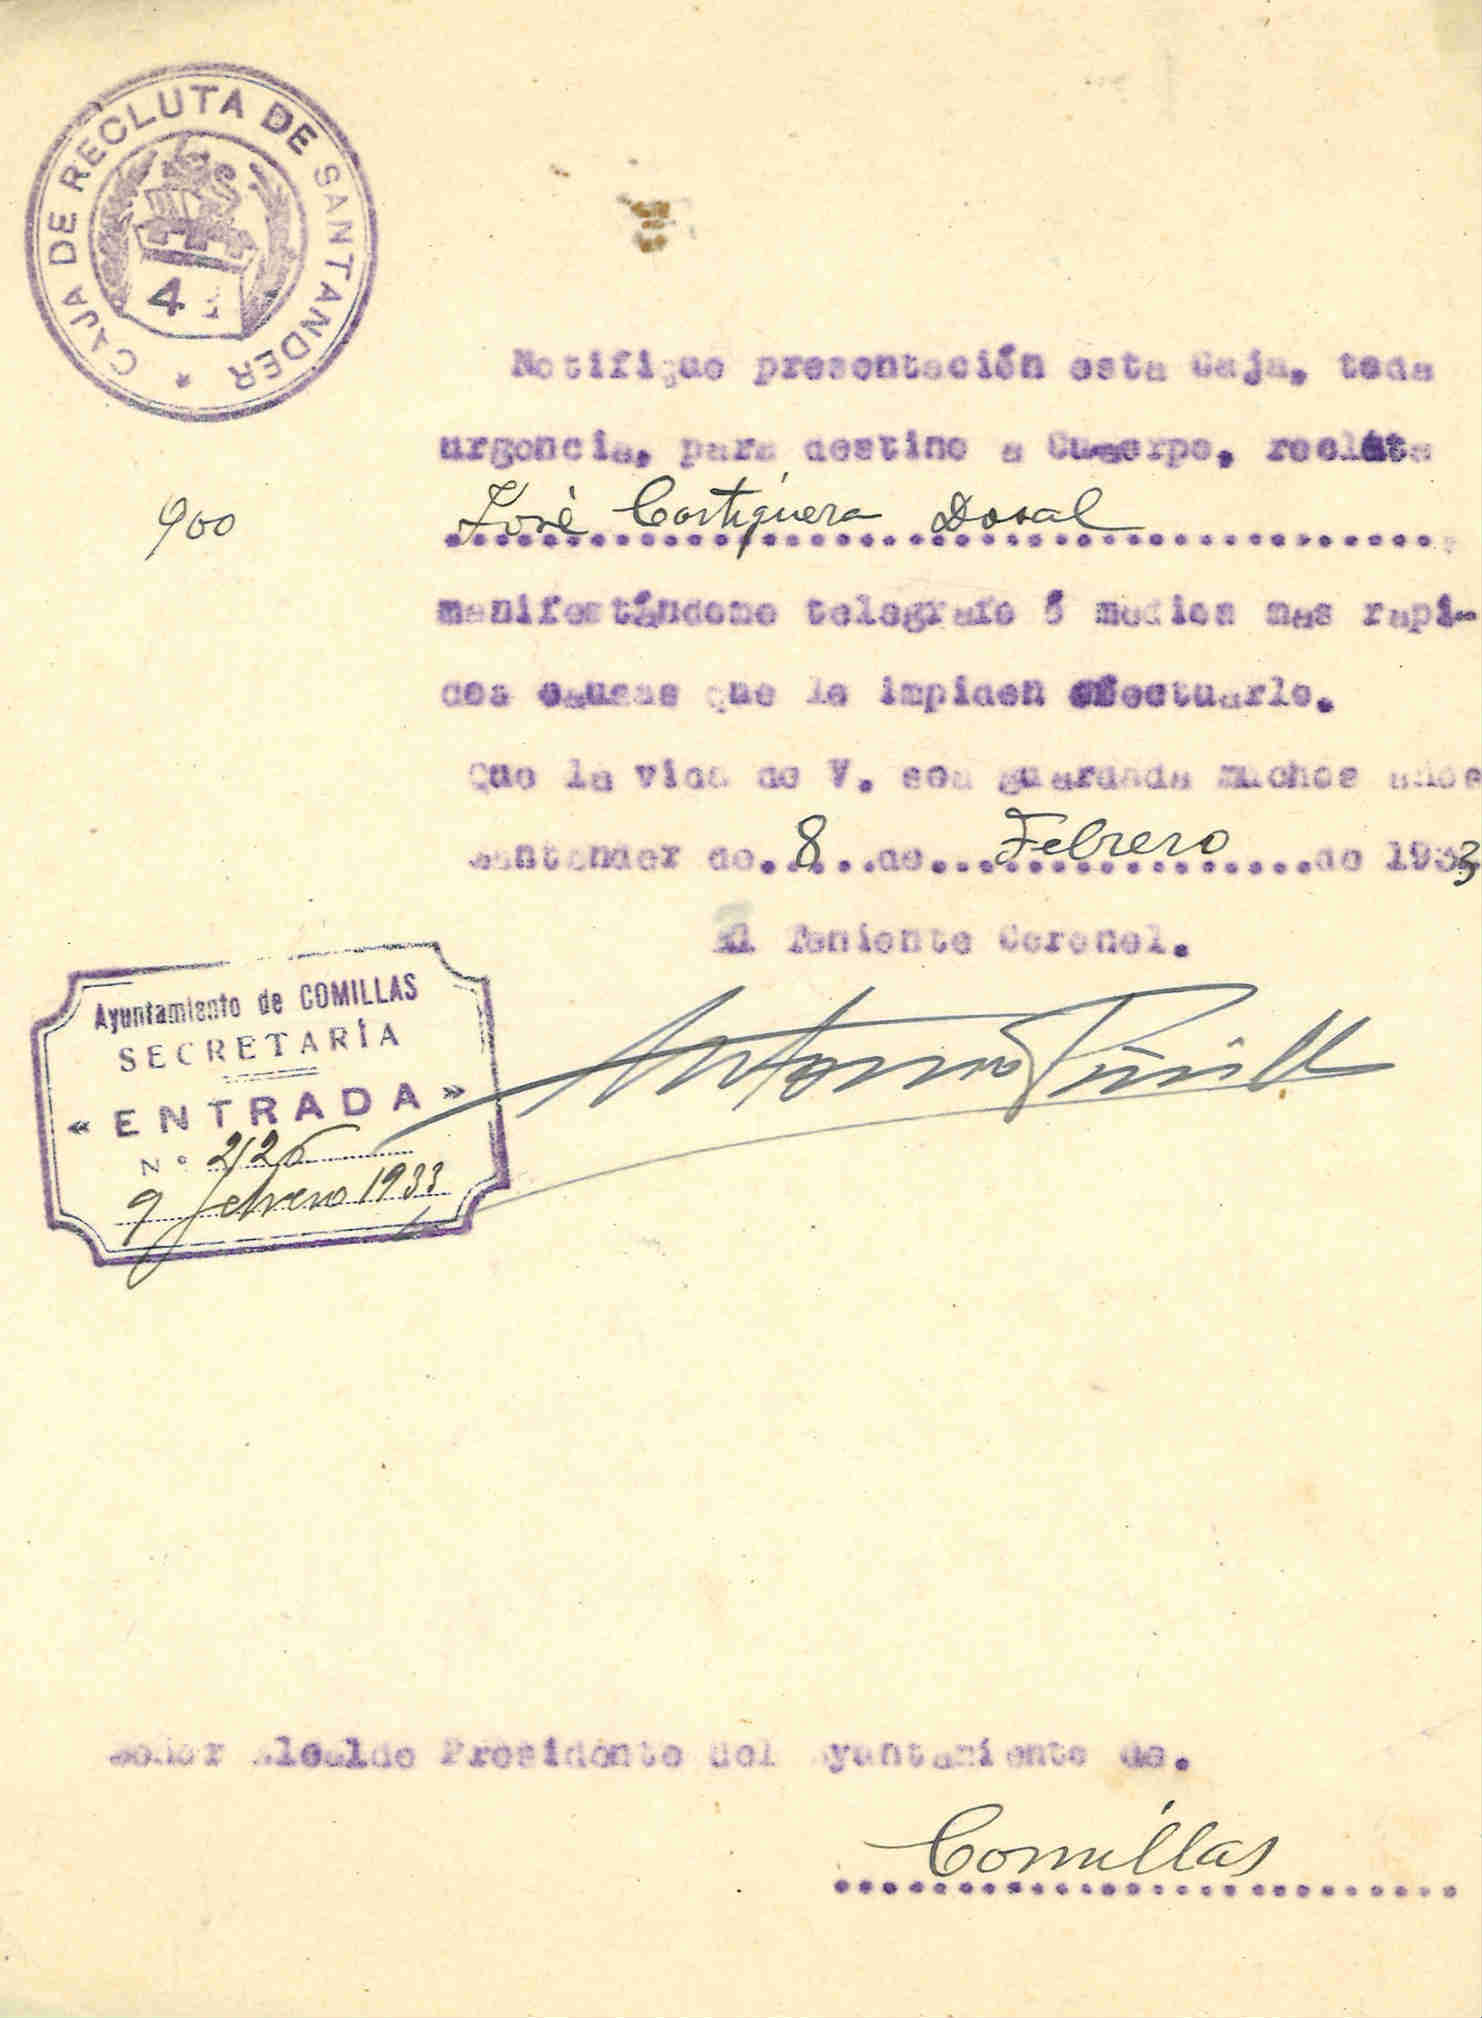 CAJA DE RECLUTA DE SANTANDER *
4
Notifique presentación esta Caja, toda
urgencia, para destino a Cuerpo, recluta
900
José Cortiguera Dosal
manifestándome telegrafo ó medios mas rapi-
dos causas que le impiden efectuarlo.
Que la vida de V. sea guardada muchos años
Santander de 8 de Febrero de 1933
El Teniente Coronel.
Antonio
Ayuntamiento de COMILLAS
SECRETARÍA
« ENTRADA »
Nº 2126
9 febrero 1933
Señor Alcalde Presidente del Ayuntamiento de.
Comillas